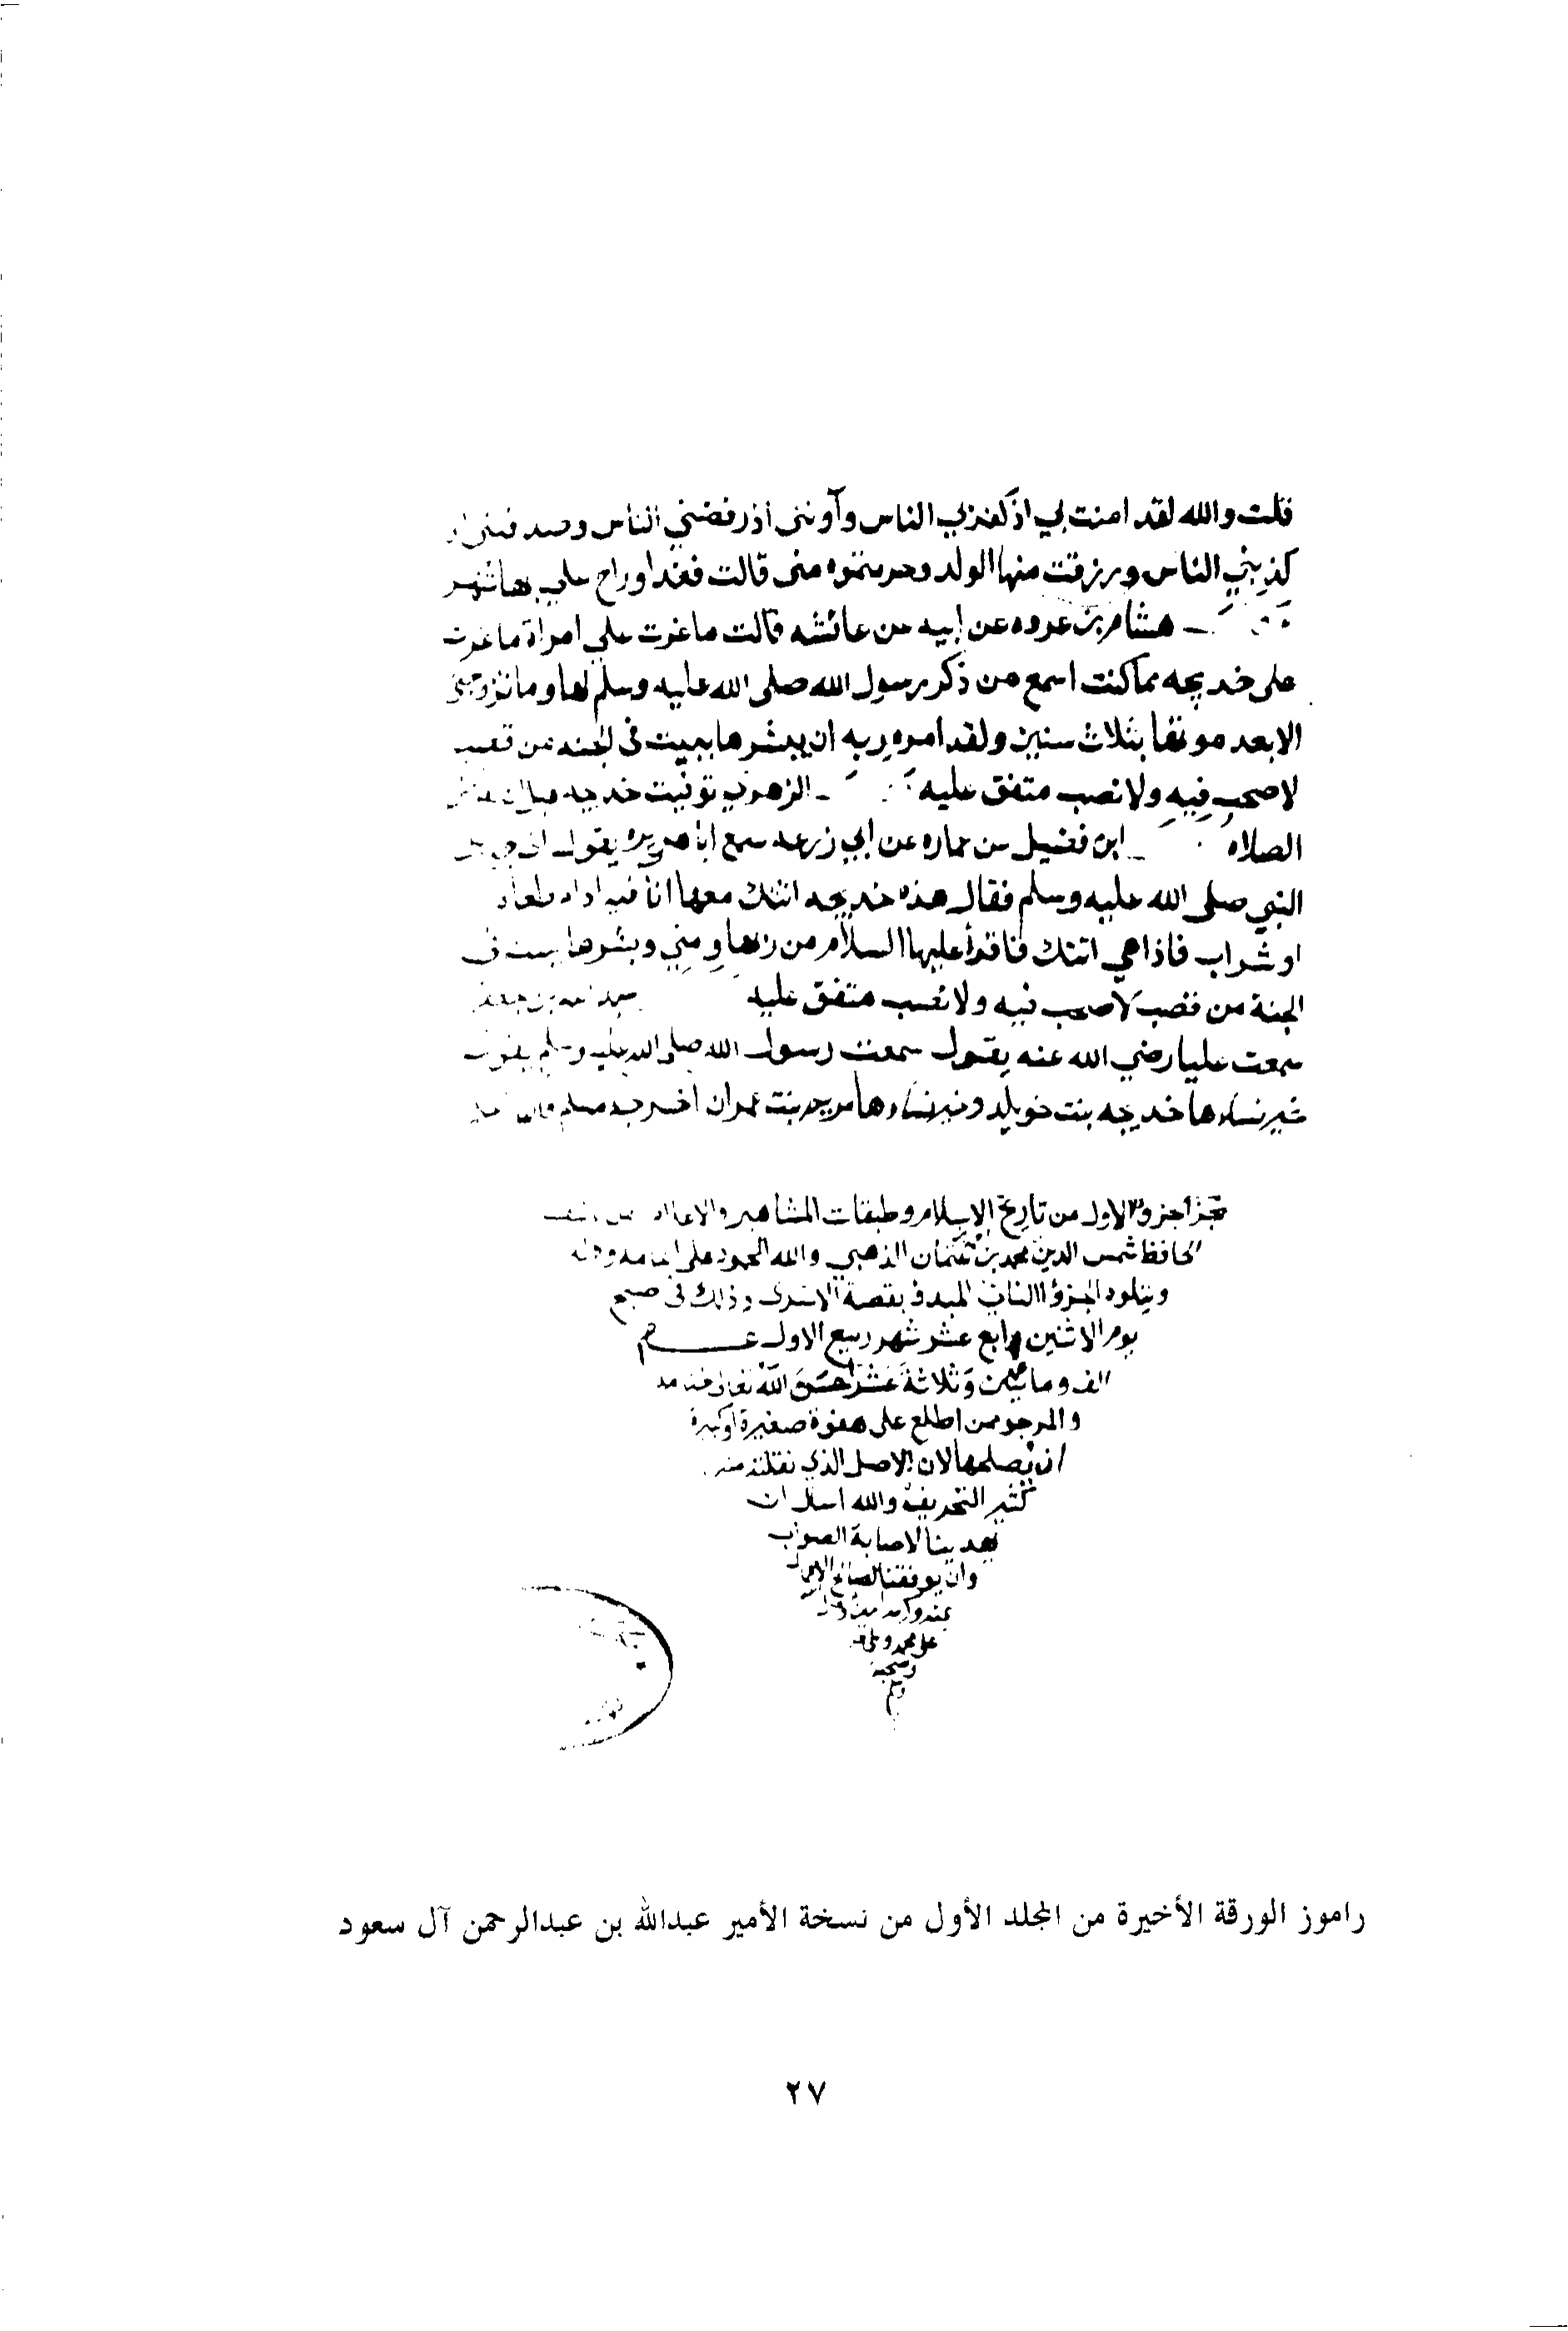 قلت والله لقد امنت بي اذ كفر بي الناس وآوتني اذ رفضني الناس وصدقتني اذ
كذبني الناس ورزقت منها الولد وحرمتموه مني قالت فغدا وراح علي بها شهر
هشام بن عروه عن ابيه عن عائشه قالت ما غرت علي امراة ما غرت
على خديجه مما كنت اسمع من ذكر رسول الله صلى الله عليه وسلم لها وما تزوجني
الا بعد موتها بثلاث سنين ولقد امره ربه ان يبشرها ببيت في الجنه من قصب
لا صخب فيه ولا نصب متفق عليه الزهري توفيت خديجه قبل ان تفرض
الصلاه ابن فضيل عن عماره عن ابي زرعه سمع ابا هريره يقول اتى جبريل
النبي صلى الله عليه وسلم فقال هذه خديجه اتتك معها انا فيه ادام طعام
او شراب فاذا هي اتتك فاقرأ عليها السلام من ربها ومني وبشرها ببيت في
الجنة من قصب لا صخب فيه ولا نصب متفق عليه عبد الله بن جعفر
سمعت عليا رضي الله عنه يقول سمعت رسول الله صلى الله عليه وسلم يقول
خير نساءها خديجه بنت خويلد وخير نساءها مريم بنت عمران اخرجه مسلم
نجز الجزو الاول من تاريخ الاسلام وطبقات المشاهير والاعلام
الحافظ شمس الدين محمد بن عثمان الذهبي والله المحمود على
ويتلوه الجزؤ الثاني المبدؤ بقصة الاسرى وذلك في صبح
يوم الاثنين رابع عشر شهر ربيع الاول عـــــام
الف ومائتين وثلاثة عشر احسن الله تعالى ختامه
والمرجو ممن اطلع على هفوة صغيرة او كبيرة
ان يصلحها لان الاصل الذي نقلته منه
كثير التحريف والله اسال ان
يهدينا لاصابة الصواب
وان يوفقنا لصالح
بمنه وكرمه امين
على محمد وعلى اله
وصحبه
وسلم
راموز الورقة الأخيرة من المجلد الأول من نسخة الأمير عبدالله بن عبدالرحمن آل سعود
٢٧